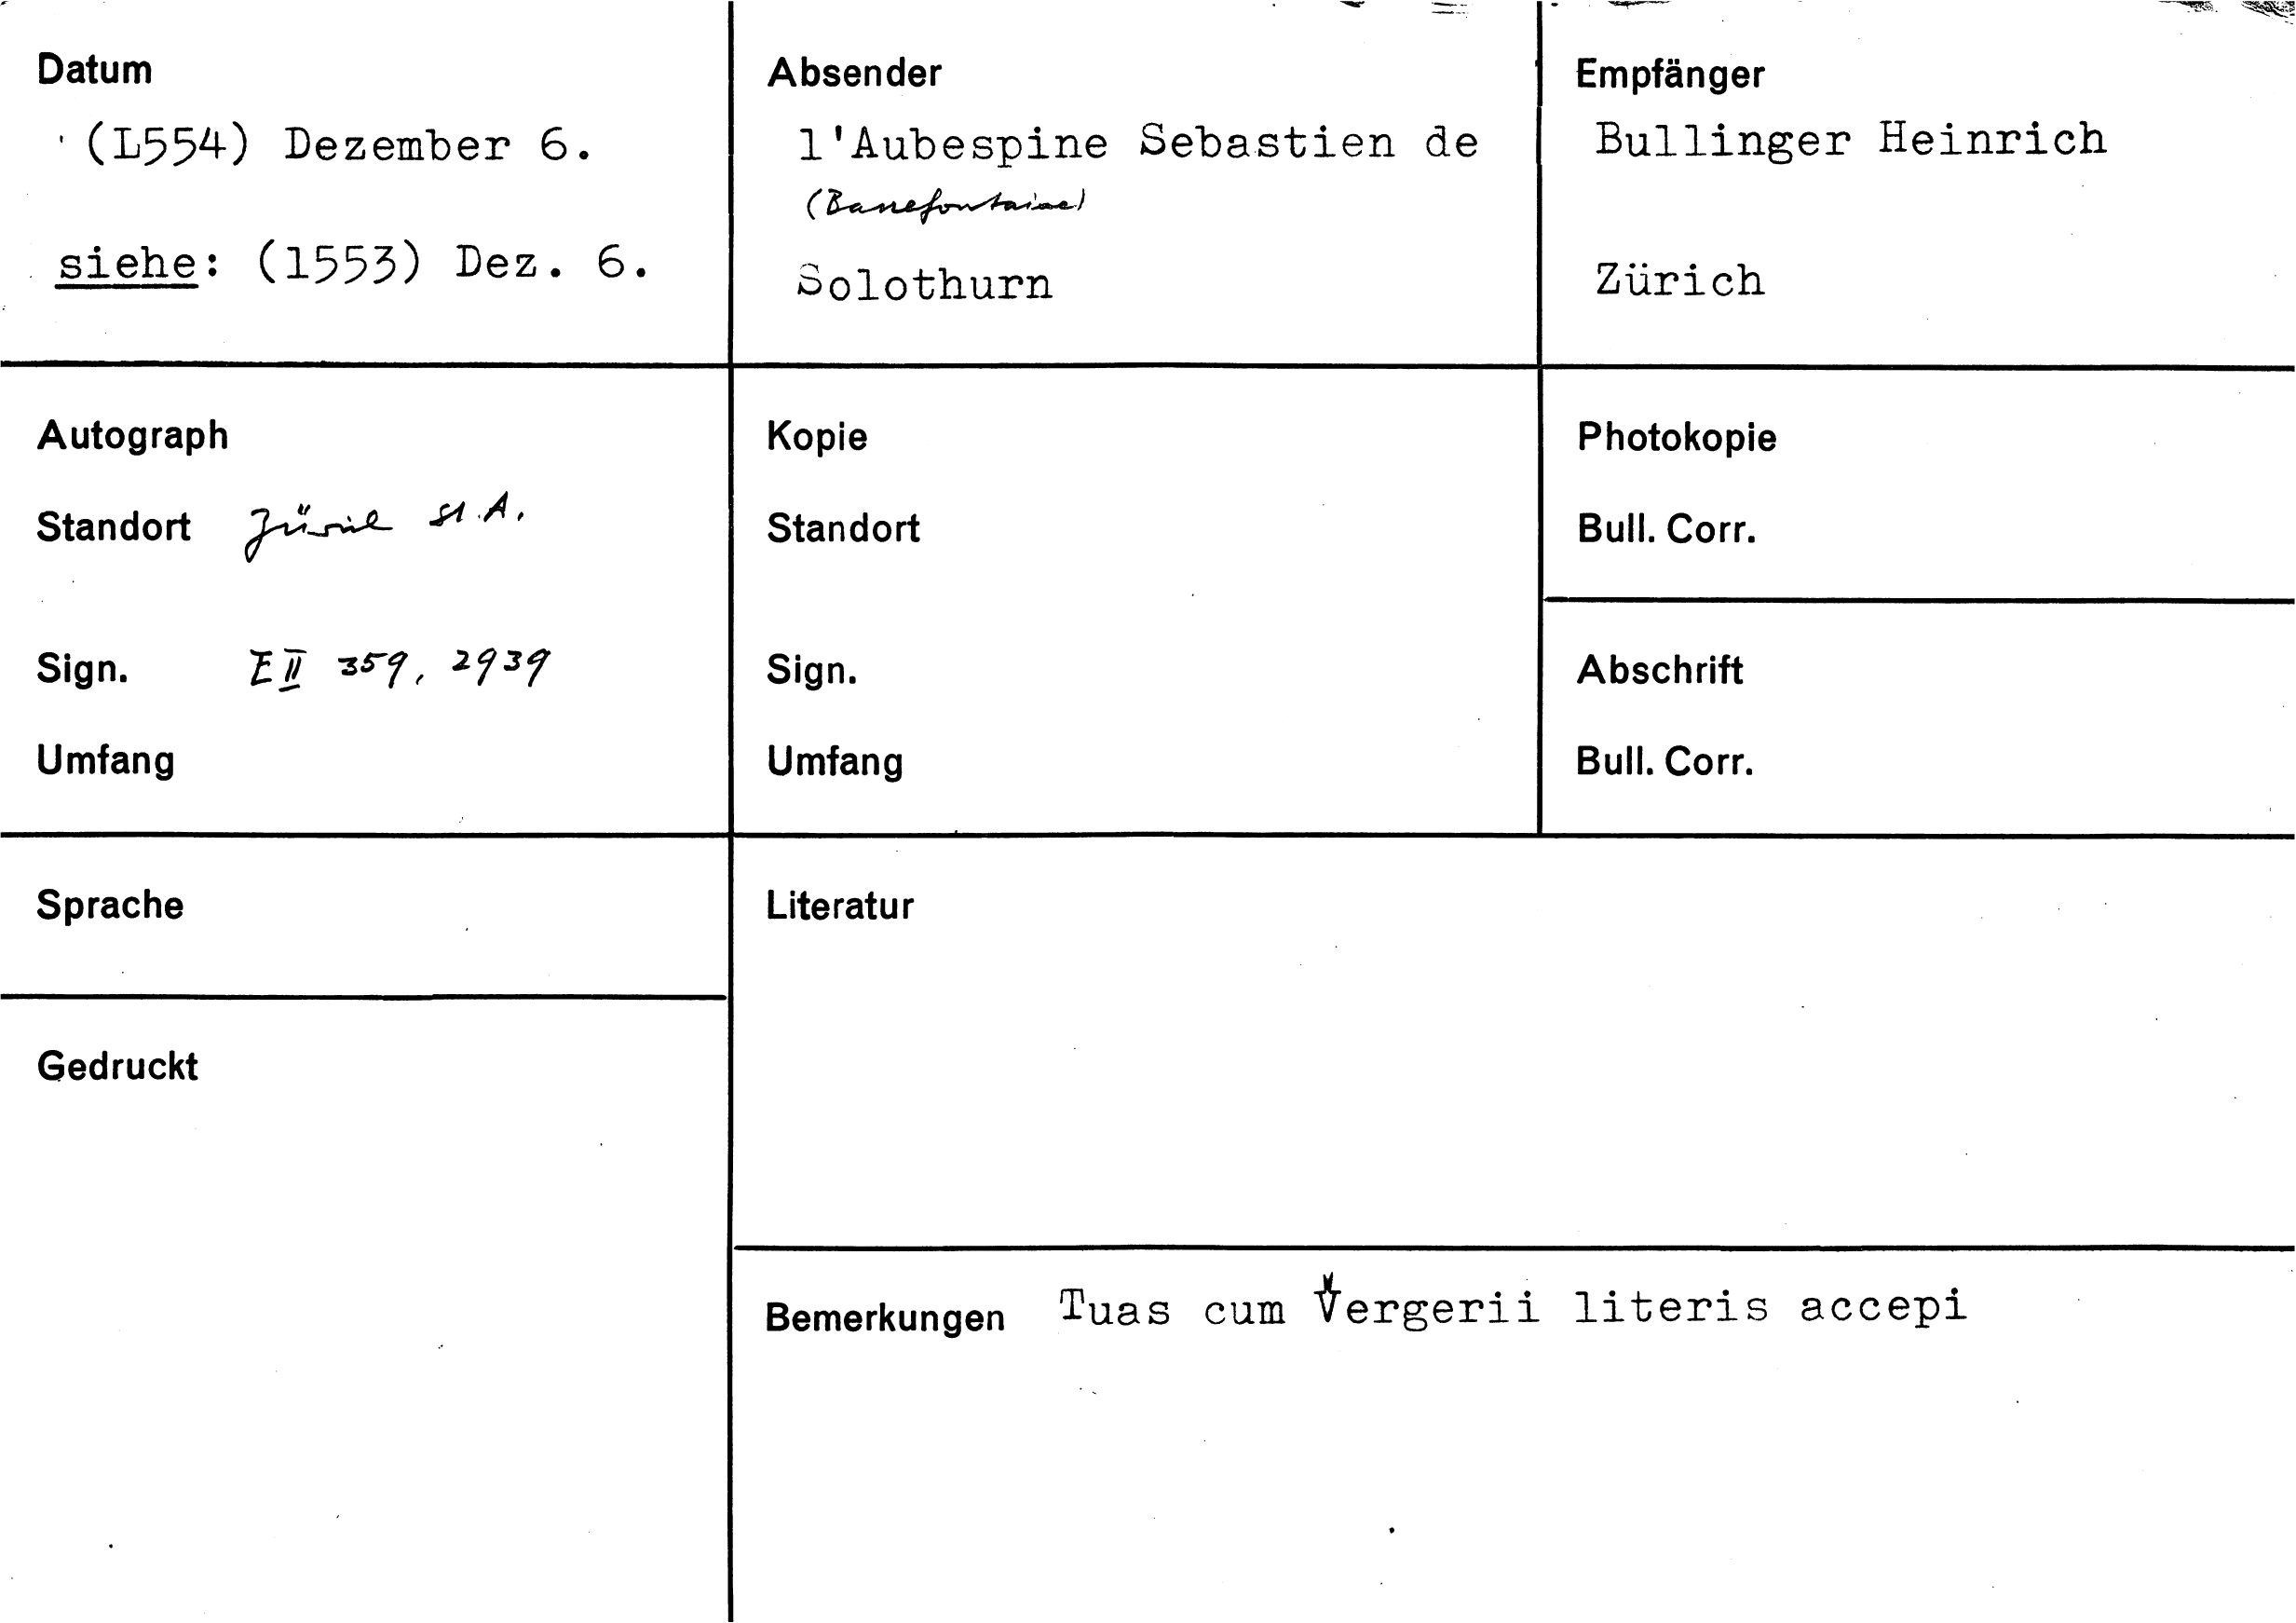 Datum
(L554) Dezember 6.
siehe: (1553) Dez. 6.
Absender
l'Aubespine Sebastien de
(Bassefontaine)
Solothurn
Empfänger
Bullinger Heinrich
Zürich
Autograph
Standort Zürich St.A.
Sign. E II 359, 2939
Umfang
Kopie
Standort
Sign.
Umfang
Photokopie
Bull. Corr.
Abschrift
Bull. Corr.
Sprache
Gedruckt
Literatur
Bemerkungen Tuas cum Vergerii literis accepi